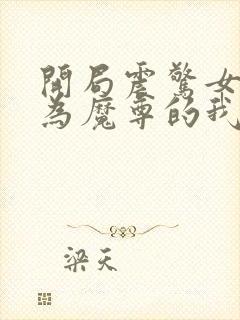 開局震驚女
為魔尊的我
梁天